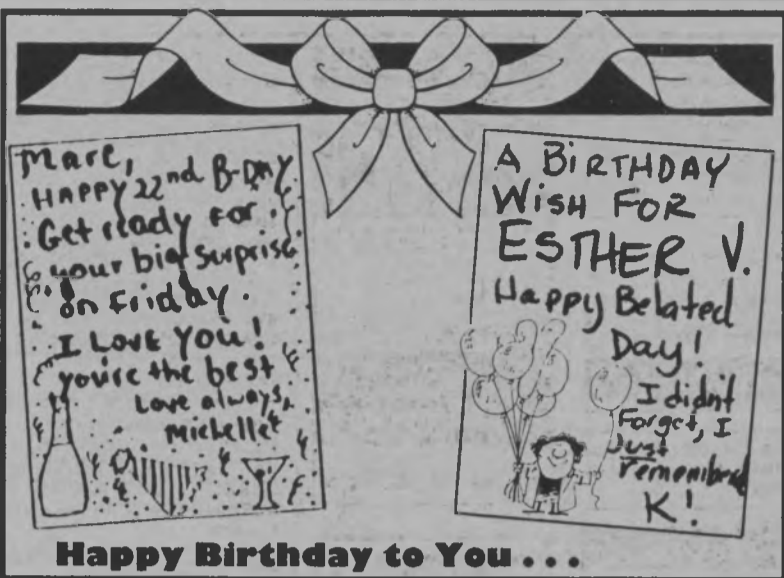 Marc,
HAPPY 22nd B-DAY
Get ready for
your big surprise
on Friday.
I LOVE YOU!
you're the best
Love always,
Michelle
A BIRTHDAY
WISH FOR
ESTHER V.
Happy Belated
Day!
I didn't
Forget, I
Just
remembered
K!
Happy Birthday to You . . .